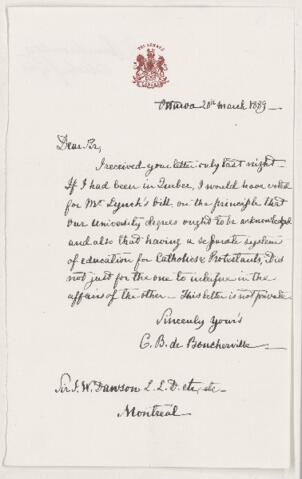 THE SENATE
Ottawa 20th March 1889 —
Dear Sir,
I received your letter only last night.
If I had been in Quebec, I would have voted
for Mr Lynch's bill, on the principle that
our University degrees ought to be acknowledged
and also that having a separate system
of education for Catholics & Protestants, it is
not just for the one to interfere in the
affairs of the other — This letter is not private
Sincerely Yours
C. B. de Boucherville —
Sir J. W. Dawson L.L.D. etc, etc —
Montreal —